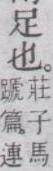 足也。
莊子馬
蹏篇、連